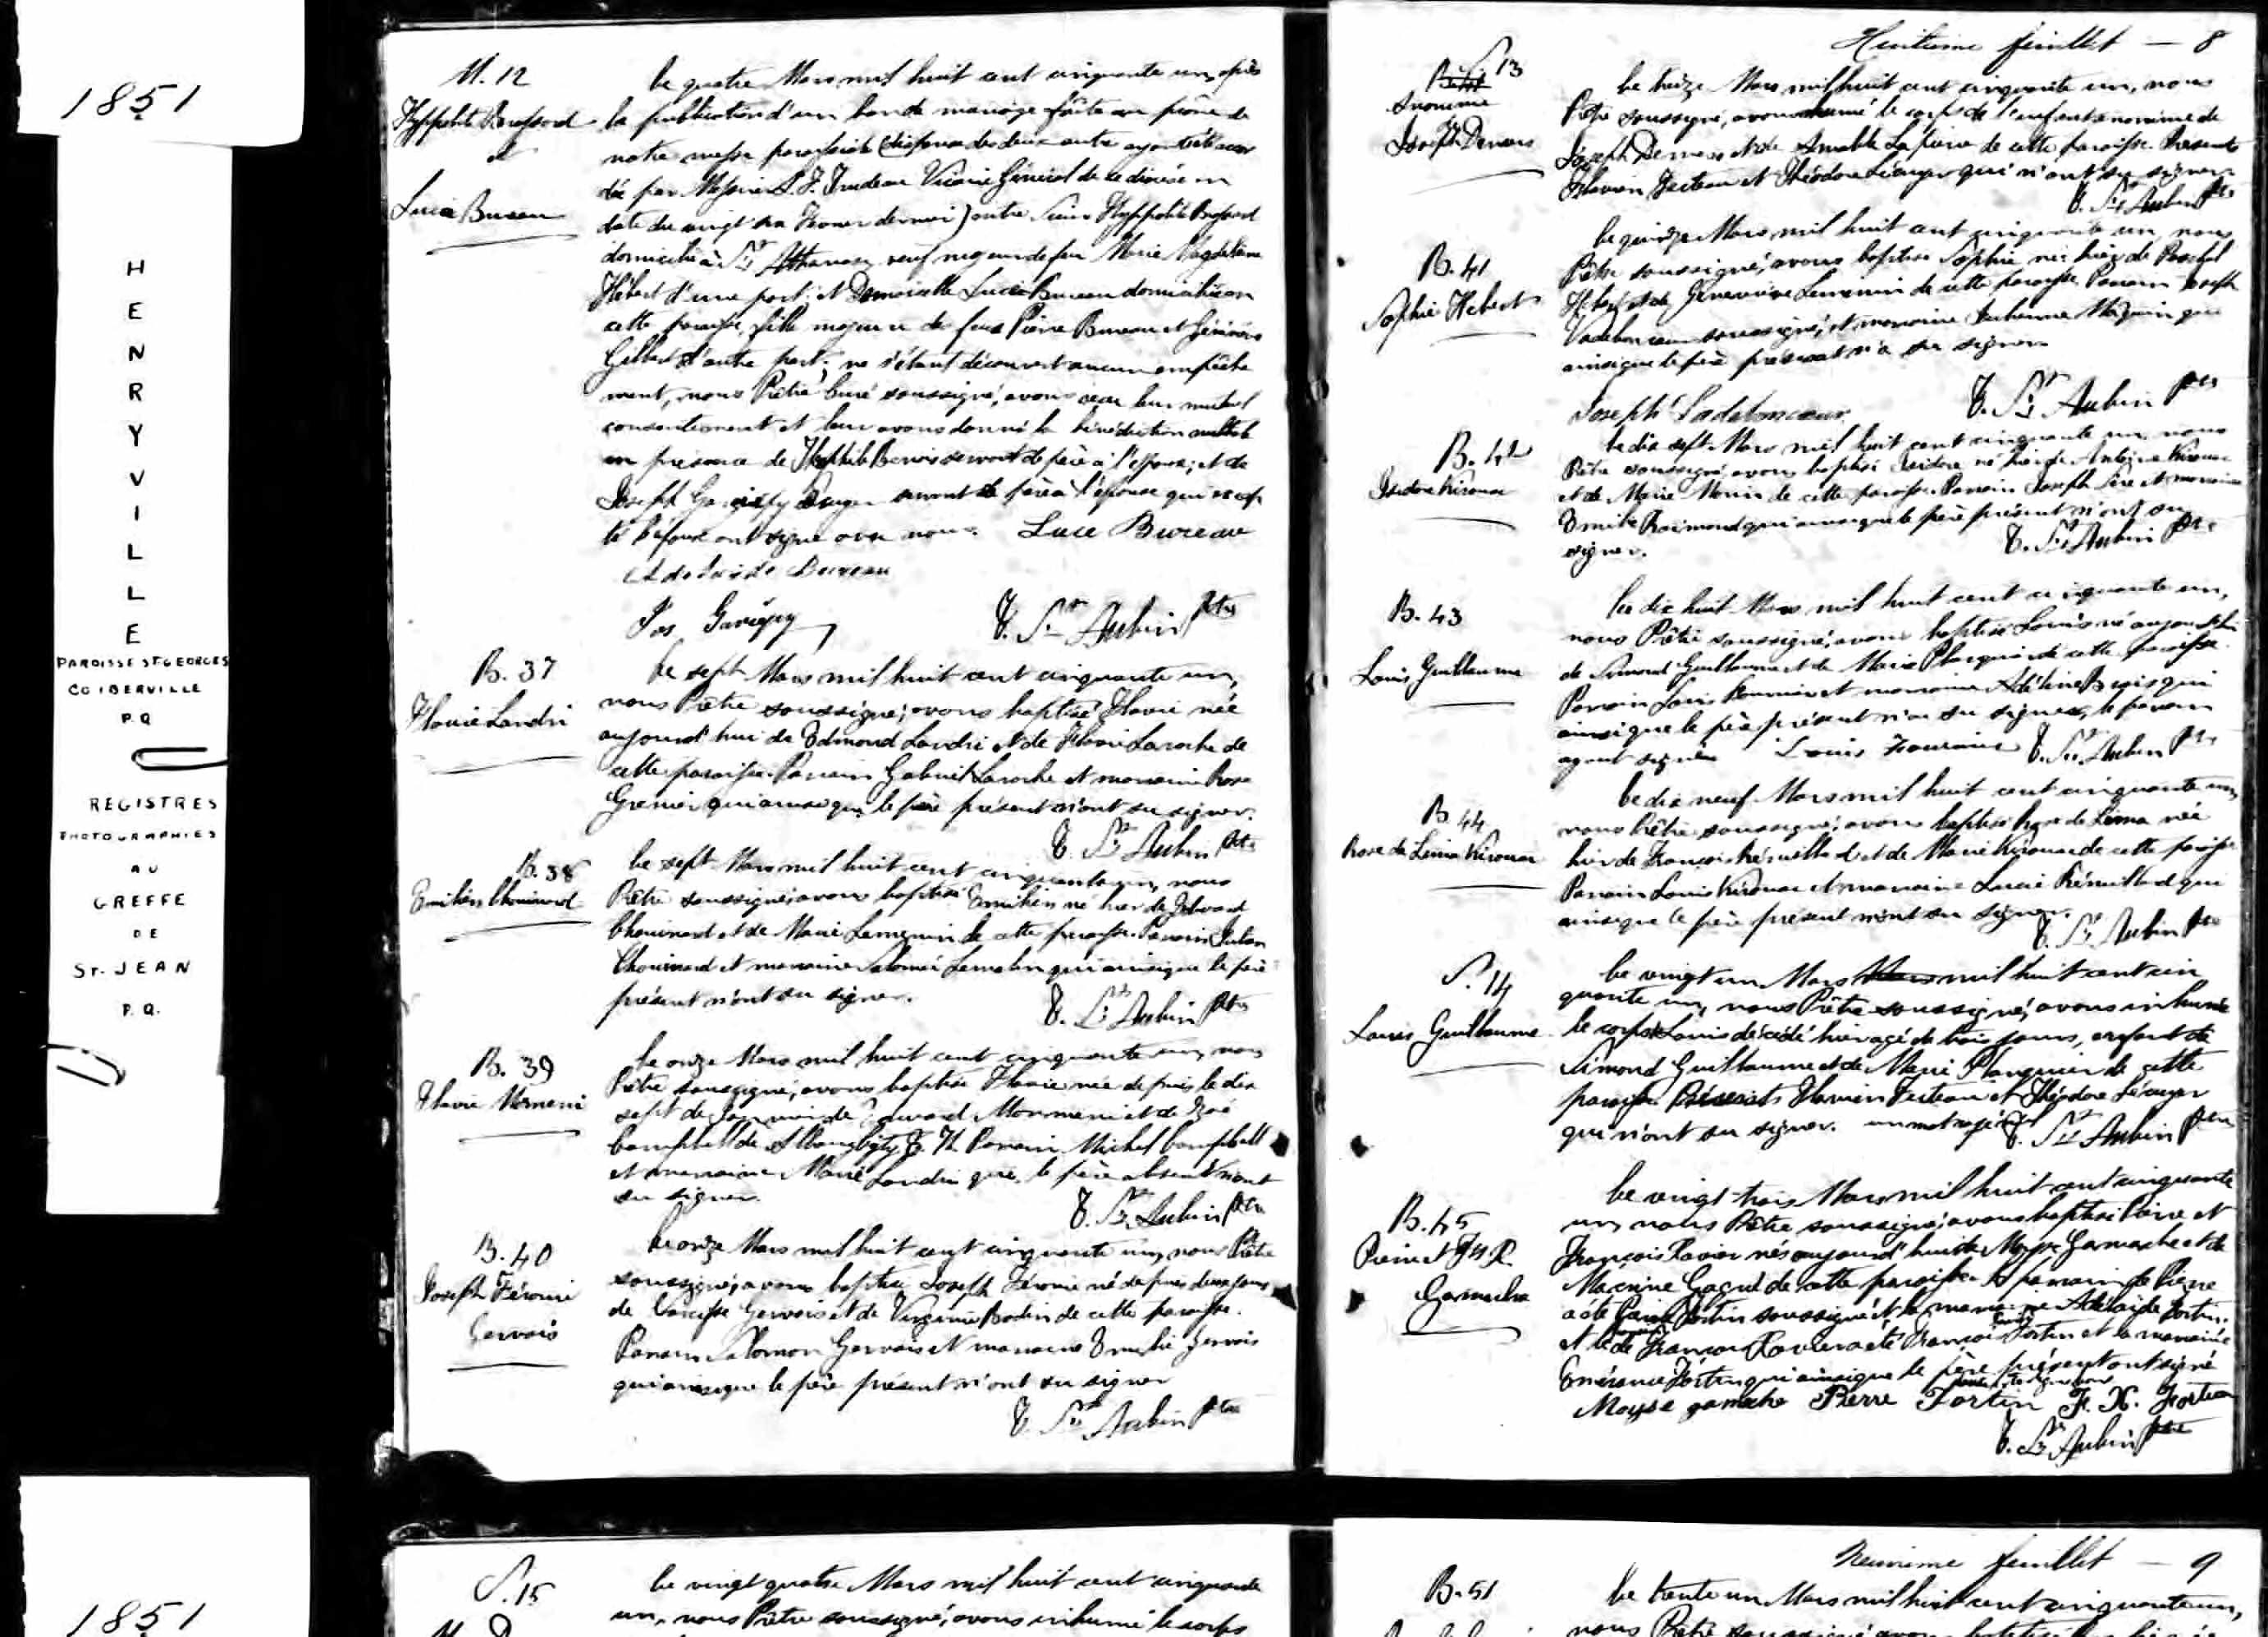 1851
HENRYVILLE
PAROISSE ST GEORGES
CO IBERVILLE
P.Q
REGISTRES
PHOTOGRAPHIES
AU
GREFFE
DE
ST. JEAN
P.Q.
1851
M. 12
Hyppolite Brossard
et
Luce Bureau
Le quatre Mars mil huit cent cinquante un, après
la publication d'un ban de mariage faite au prône de
notre messe paroissiale (dispense des deux autres ayant été accor
dée par Messire Trudeau Vicaire Général de ce diocèse en
date du vingt Fevrier dernier) entre Sieur Hyppolite Brossard
domicilié à St Athanase, veuf majeur de feu Marie Magdeleine
Hébert d'une part; et Demoiselle Luce Bureau domiciliée en
cette paroisse, fille majeure de feus Pierre Bureau et Geneviève
Gilbert d'autre part; ne s'étant découvert aucun empêche
ment, nous Prêtre Curé soussigné, avons reçu leur mutuel
consentement et leur avons donné la bénédiction nuptiale
en présence de servant de père à l'époux; et de
Joseph Gariépy servant de père à l'épouse qui
l'époux ont signé avec nous. Luce Bureau
Adelaide Bureau
Jos Gariépy
T. St Aubin Ptre
B. 37
Flavie Landri
Le sept Mars mil huit cent cinquante un,
nous Prêtre soussigné, avons baptisé Flavie née
aujourd'hui de Edmond Landri et de Flavie Laroche de
cette paroisse. Parrain Gabriel Laroche et marraine Rose
Grenier qui ainsi que le père présent n'ont su signer.
T. St Aubin Ptre
B. 38
Emilien Chouinard
Le sept Mars mil huit cent cinquante un, nous
Prêtre soussigné, avons baptisé Emilien né hier de Edouard
Chouinard et de Marie Lemenin de cette paroisse. Parrain Julien
Chouinard et marraine Salomé Lemelin qui ainsi que le père
présent n'ont su signer.
T. St Aubin Ptre
B. 39
Flavie Mormeni
Le onze Mars mil huit cent cinquante un, nous
Prêtre soussigné, avons baptisé Flavie née depuis le dix
sept de Janvier de Edouard Mormeni et de Zoé
Campbell de Parrain Michel Campbell
et marraine Marie Landri que le père absent n'ont
su signer.
T. St Aubin Ptre
B. 40
Joseph Férouri
Gervais
Le onze Mars mil huit cent cinquante un, nous Prêtre
soussigné, avons baptisé Joseph né depuis deux jours
de Narcisse Gervais et de Virginie Bodin de cette paroisse.
Parrain Salomon Gervais et marraine Emelie Gervais
qui ainsi que le père présent n'ont su signer
T. St Aubin Ptre
Huitieme feuillet — 8
S. 13
Anonime
Joseph Demers
Le treize Mars mil huit cent cinquante un, nous
Prêtre soussigné, avons inhumé le corps de l'enfant anonime de
Joseph Demers et de Amable Lapierre de cette paroisse. Présents
Flavien Fecteau et Théodore Lécuyer qui n'ont su signer
T. St Aubin Ptre
B. 41
Sophie Hebert
Le quinze Mars mil huit cent cinquante un, nous
Prêtre soussigné, avons baptisé Sophie née hier de Paschal
Hébert et de Geneviève Lemenin de cette paroisse. Parrain Joseph
Vadeboncoeur soussigné, et marraine qui
ainsi que le père présent n'a su signer
Joseph Vadeboncoeur
T. St Aubin Ptre
B. 42
Isidore Kirouac
Le dix sept Mars mil huit cent cinquante un, nous
Prêtre soussigné, avons baptisé Isidore né hier de Antoine Kirouac
et de Marie Morin de cette paroisse. Parrain Joseph Sire et marraine
Emilie Raimond qui ainsi que le père présent n'ont su
signer.
T. St Aubin Ptre
B. 43
Louis Guillaume
Le dix huit Mars mil huit cent cinquante un,
nous Prêtre soussigné, avons baptisé Louis né aujourd'hui
de Simond Guillaume et de Marie Plarquin de cette paroisse.
Parrain Louis Fournier et marraine Adéline qui
ainsi que le père présent n'a su signer, le parrain
ayant signé. Louis Fournier T. St Aubin Ptre
B 44
Rose de Lima Kirouac
Le dix neuf Mars mil huit cent cinquante un,
nous Prêtre soussigné, avons baptisé Rose de Lima née
hier de François Frénuillard et de Marie Kirouac de cette paroisse
Parrain Louis Kirouac et marraine Lucie Frénuillard qui
ainsi que le père présent n'ont su signer.
T. St Aubin Ptre
S. 14
Louis Guillaume
Le vingt un Mars mil huit cent cin
quante un, nous Prêtre soussigné, avons inhumé
le corps de Louis décédé hier agé de trois jours, enfant de
Simond Guillaume et de Marie Plarquin de cette
paroisse. Présents Flavien Fecteau et Théodore Lécuyer
qui n'ont su signer. un mot rayé T. St Aubin Ptre
B. 45
Pierre et Frs X.
Gamache
Le vingt trois Mars mil huit cent cinquante
un, nous Prêtre soussigné, avons baptisé Pierre et
François Xavier nés aujourd'hui de Moyse Gamache et de
Macrine Gagné de cette paroisse. Le parrain de Pierre
a été Pierre Fortin soussigné et la marraine Adelaide Fortin.
et de François Xavier a été François Fortin et la marraine
Emérance Fortin qui ainsi que le père présent ont signé
Moyse gamache Pierre Fortin F. X. Fortin
T. St Aubin Ptre
S. 15
Le vingt quatre Mars mil huit cent cinquante
un, nous Prêtre soussigné, avons inhumé le corps
Neuvieme feuillet — 9
B. 51
Le trente un Mars mil huit cent cinquante un,
nous Prêtre soussigné avons